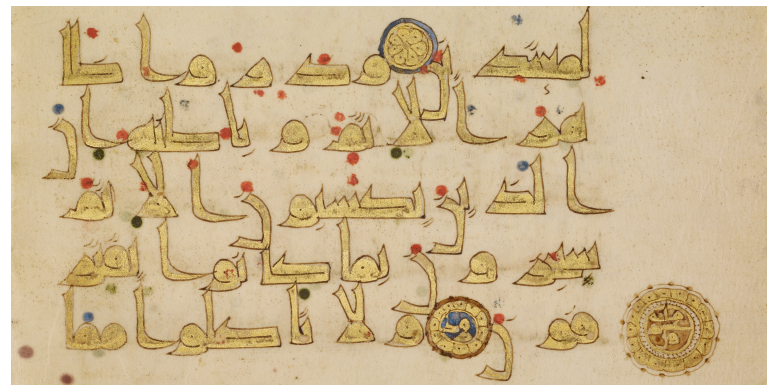 لمعتدين وذروا ظا
هر الاثم وباطنه ان
الذين يكسبون الاثم
سيجزون بما كانوا يقتر
فون ولا تاكلوا مما